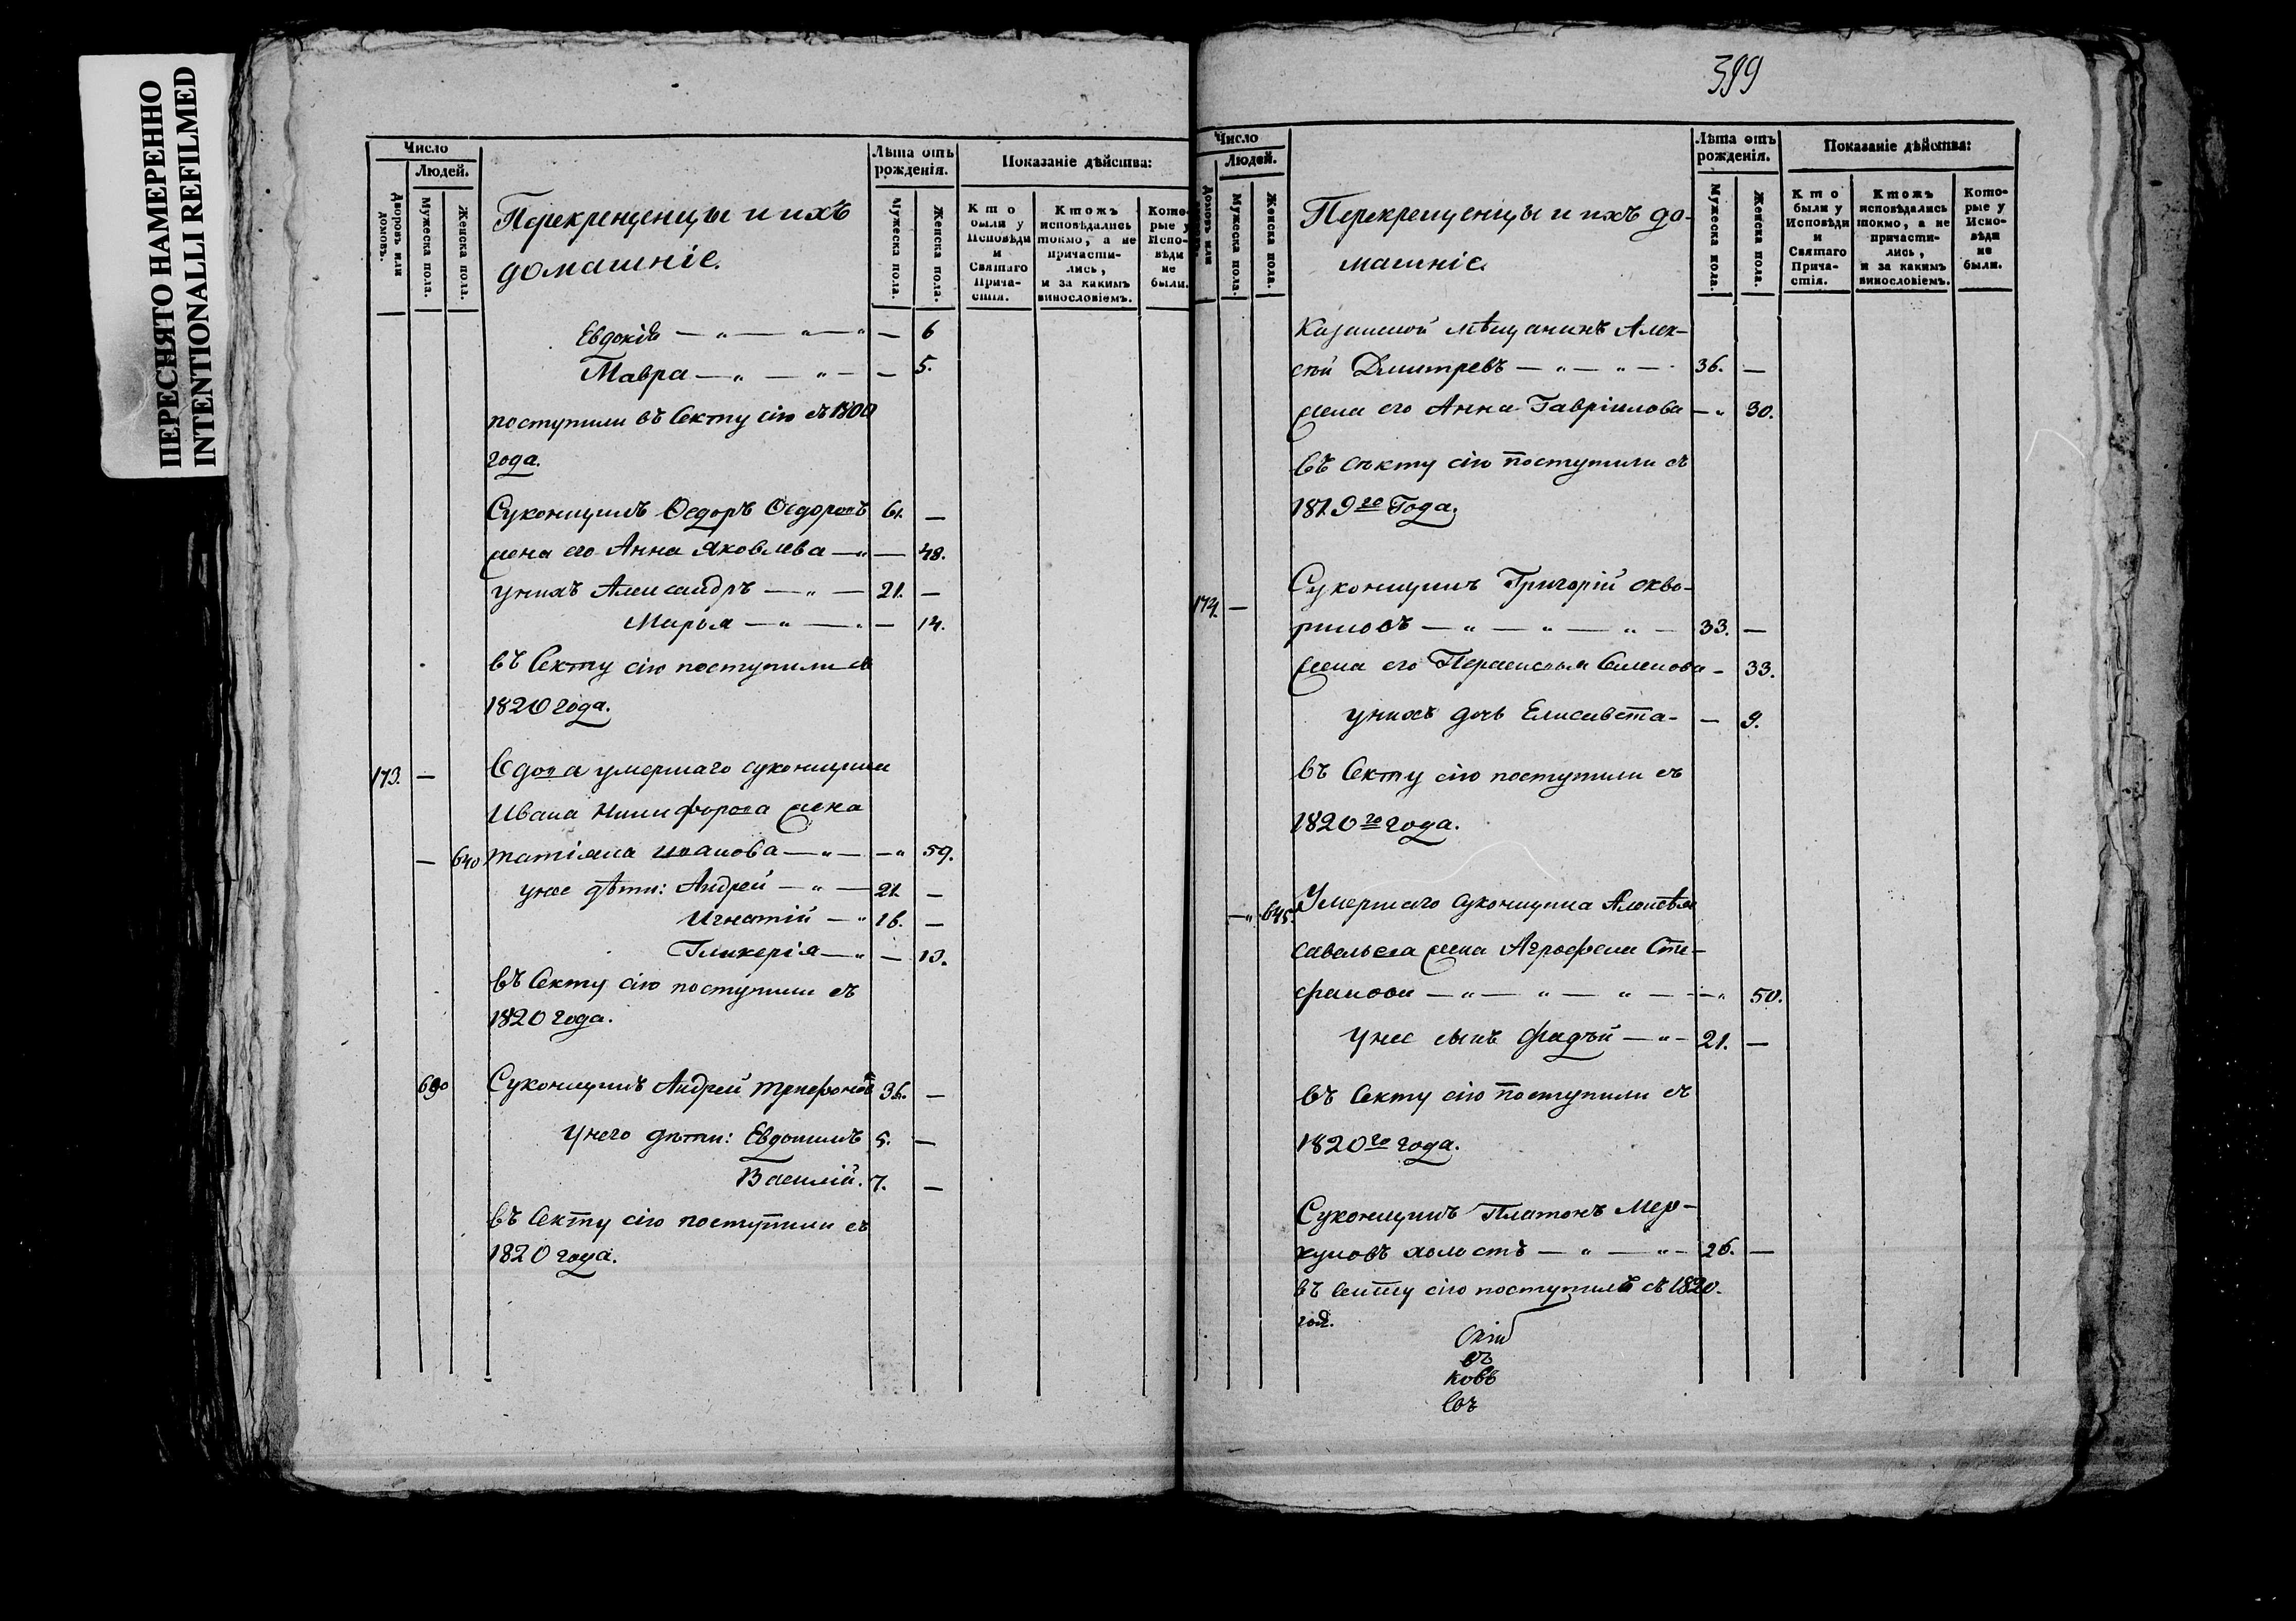 ПЕРЕСНЯТО НАМЕРЕННО
INTENTIONALLI REFILMED
Число
Людей.
Дворовъ или домовъ.
Мужеска пола.
Женска пола.
Перекрещенцы и ихъ
домашніе.
Лѣта отъ
рожденія.
Мужеска пола.
Женска пола.
Показаніе дѣйства:
Кто
были у
Исповѣди
и
Святаго
Прича-
стія.
Ктожъ
исповѣдались
токмо, а не
причасти-
лись,
и за какимъ
винословіемъ.
Кото-
рые у
Испо-
вѣди
не
были.
Евдокія — „ — „ — „ — 6
Мавра — „ — „ — — 5.
поступили въ Секту сію съ 1800
года.
Суконщикъ Ѳедоръ Ѳедоровъ 61. —
жена его Анна Яковлева — „ — 48.
у нихъ Александръ — „ — 21. —
Марья — „ — . — 14.
въ Секту сію поступили съ
1820 года.
173. — Вдова умершаго суконщика
Ивана Никифорова жена
— 640 татіяна иванова — „ — — „ 59.
у нее дѣти: Андрей — „ — 21. —
Игнатій — „ 16. —
Гликерія — „ — 13.
въ Секту сію поступили съ
1820 года.
690 Суконщикъ Андрей Трифоновъ 36. —
у него дѣти: Евдокимъ 5. —
Василій. 7. —
въ Секту сію поступили съ
1820 года.
399
Число
Людей.
домовъ или
Мужеска пола.
Женска пола.
Перекрещенцы и ихъ до-
машніе.
Лѣта отъ
рожденія.
Мужеска пола.
Женска пола.
Показаніе дѣйства:
Кто
были у
Исповѣди
и
Святаго
Прича-
стія.
Ктожъ
исповѣдались
токмо, а не
причасти-
лись,
и за какимъ
винословіемъ.
Кото-
рые у
Испо-
вѣди
не
были.
Казанской мѣщанинъ Алек-
сѣй Дмитревъ — „ — „ — . 36. —
жена его Анна Гавріилова — „ 30.
въ секту сію поступили съ
1819го Года.
174. — Суконщикъ Григорій скво-
рцовъ — „ — „ — „ — 33. —
жена его Парасковья Семенова - 33.
у нихъ дочь Елисавета - — 9.
въ Секту сію поступили съ
1820го года.
— „ 645. Умершаго суконщика Алексѣя
савельева жена Агрофена Сте-
фанова — „ — „ — „ — — „ 50.
у нее сынъ Фадѣй — „ — 21. —
въ Секту сію поступили съ
1820го года.
Суконщикъ Платонъ Мер-
куловъ холостъ — „ — „ — 26. —
въ секту сію поступилъ съ 1820.
год.